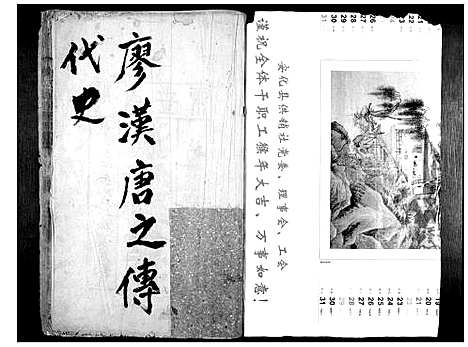 安化县供销社党委、理事会、工会
谨祝全体干职工猴年大吉、万事如意!
廖漢唐之傳
代史
31
30
29
28
27
26
25
24
23
22
21
20
31
30
29
28
27
26
25
24
23
22
21
20
19